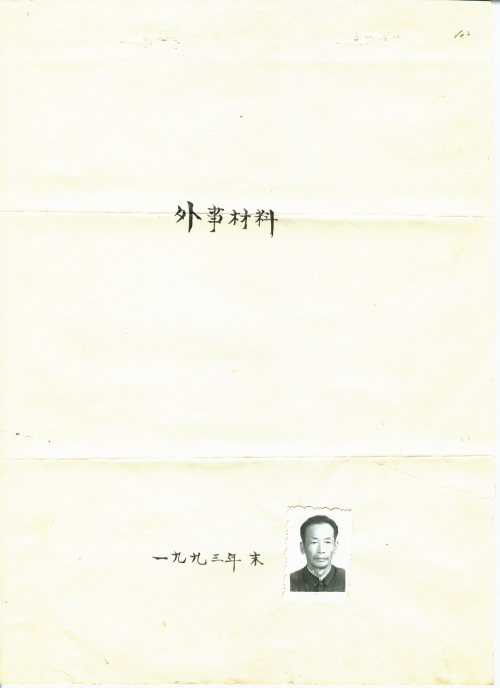 外事材料
一九九三年末